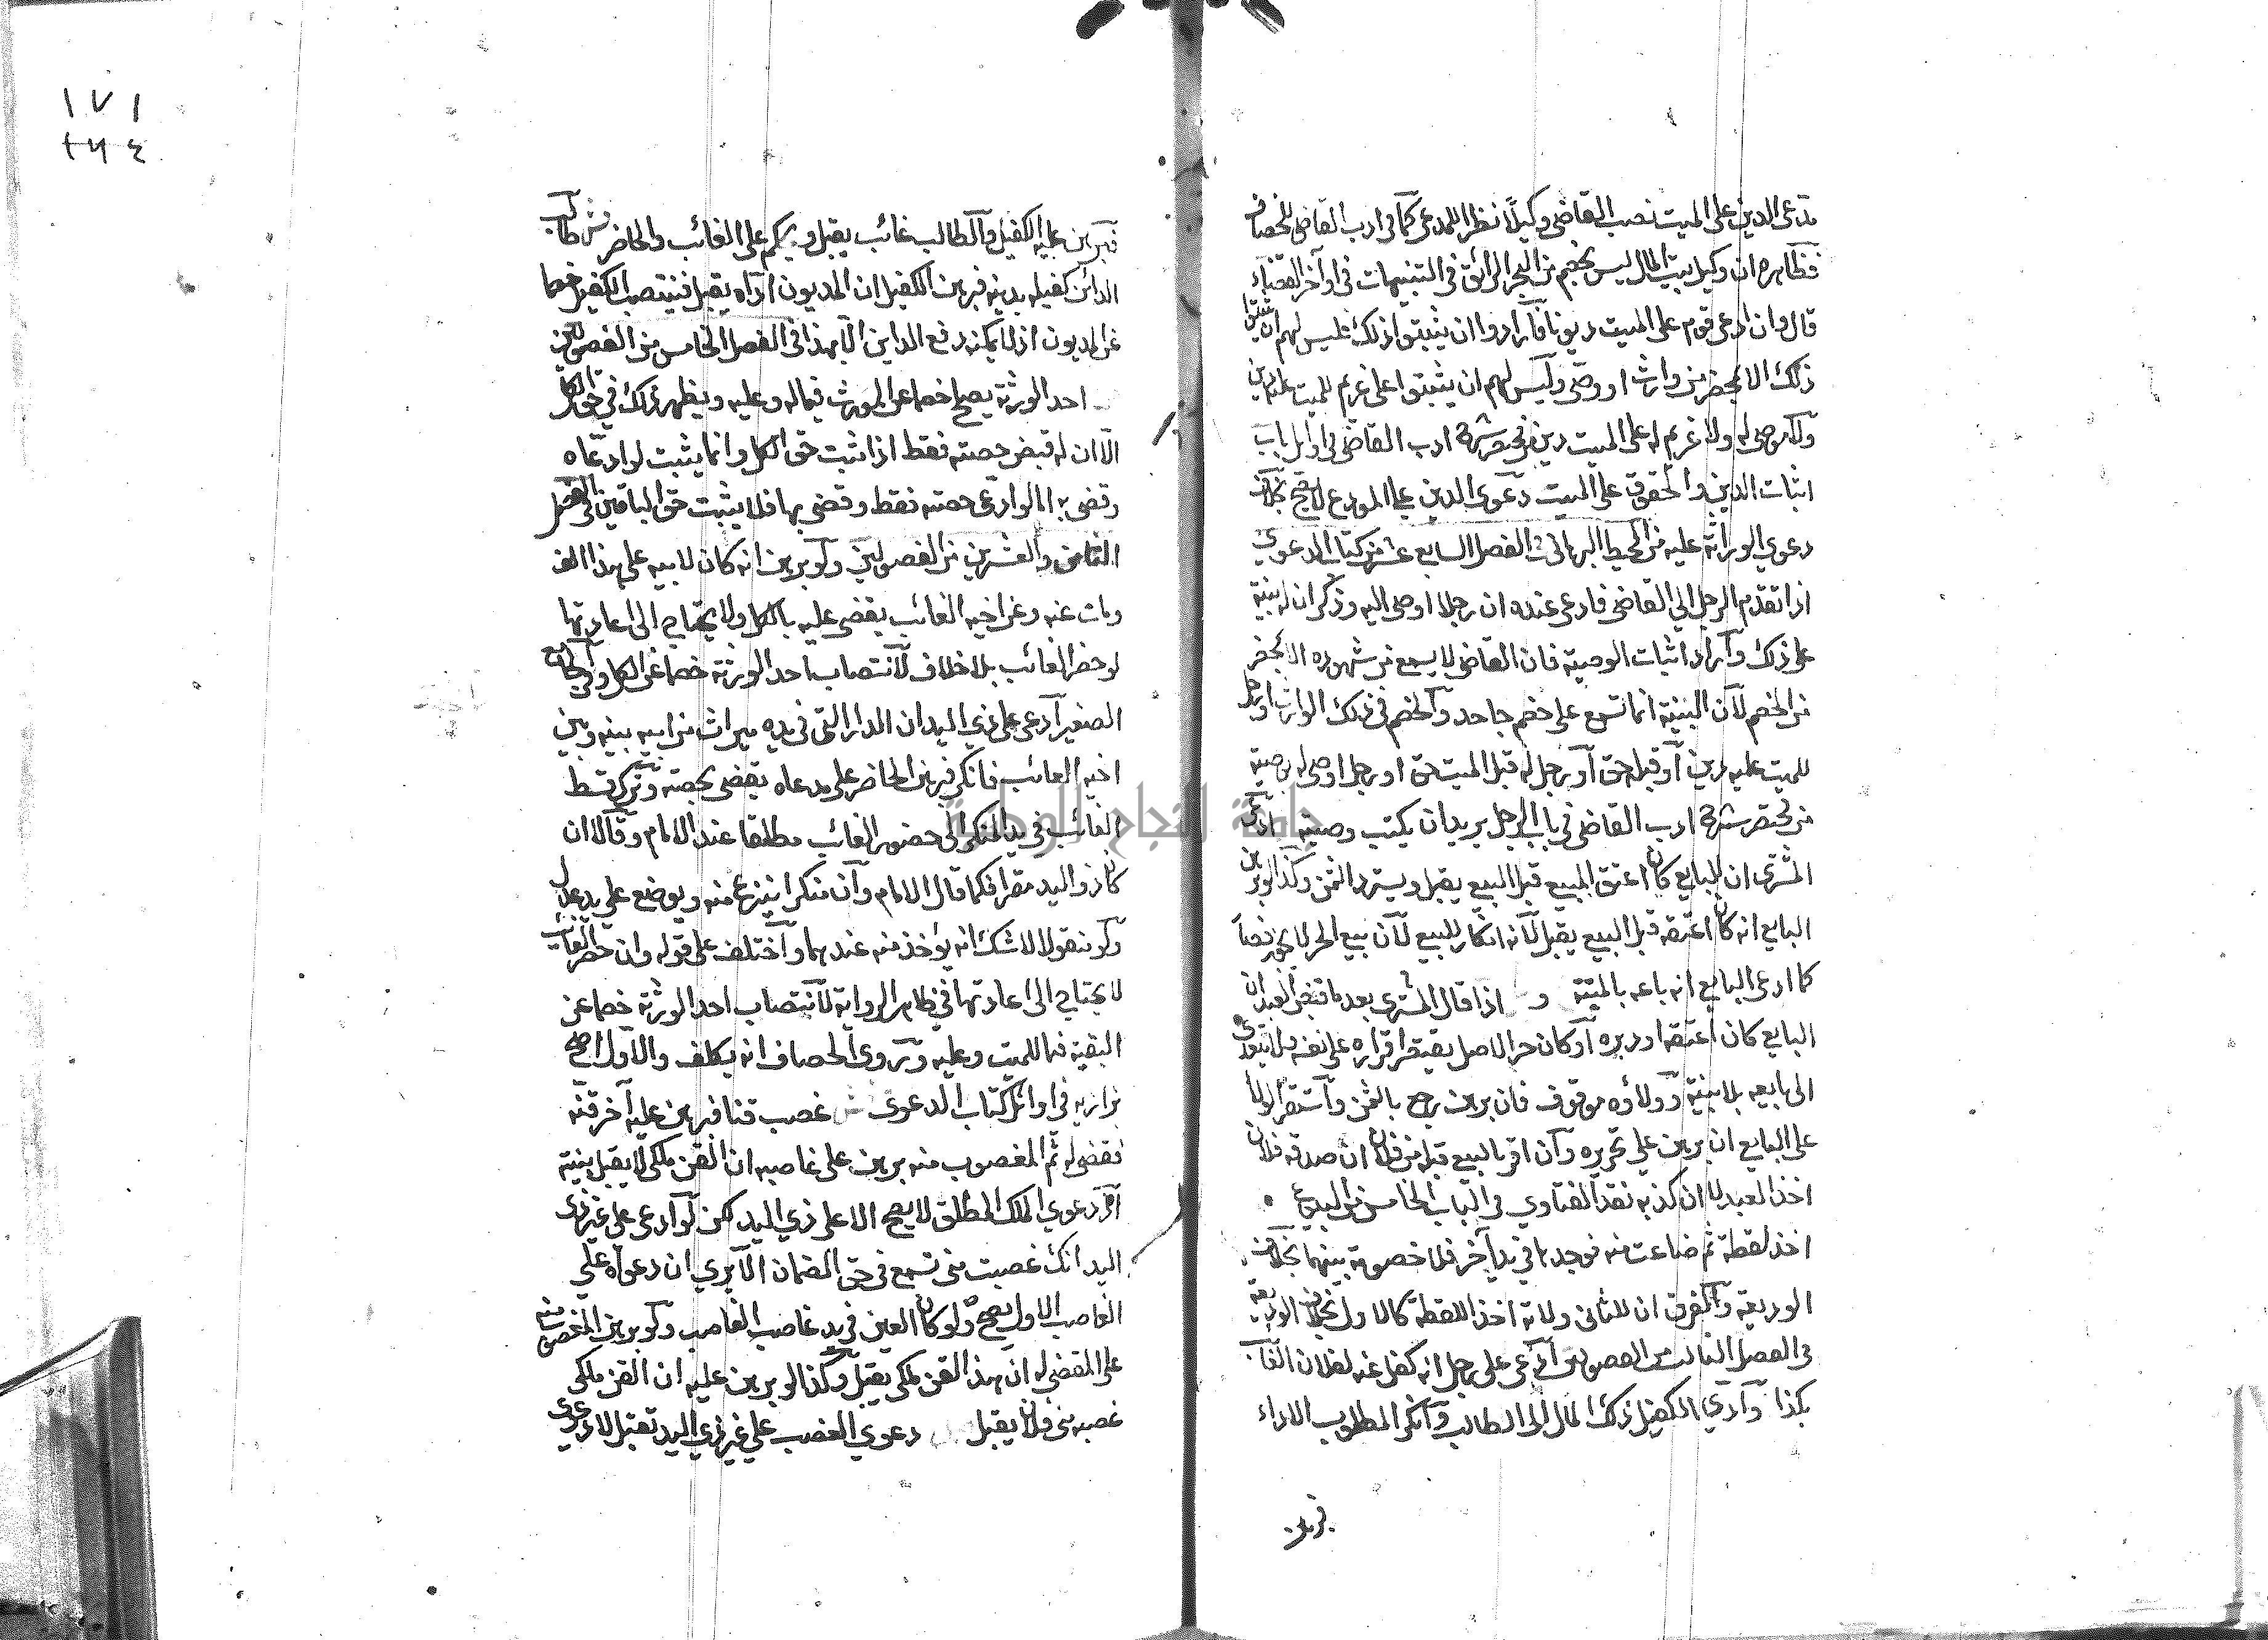 مدعى الدين على الميت نصب القاضي وكيلا نظرا للمدعى كما في ادب القاضي للخصاف
فظاهره ان وكيل بيت المال ليس بخصم من البحر الرائق في التنبيهات في اواخر القضاء
قال وان ادعى قوم على الميت ديونا فارادوا ان يثبتوا ذلك فليس لهم ان يثبتوا
ذلك الا بمحضر من وارث او وصي وليس لهم ان يثبتوا على غريم للميت عليه دين
ولا موصى له ولا غريم له على الميت دين من مختصر شرح ادب القاضي في اوايل باب
اثبات الدين والحقوق على الميت دعوى الدين على المودع لا يصح بخلاف
دعوى الوراثة عليه من المحيط البرهاني في الفصل السابع عشر من كتاب الدعوى
اذا تقدم الرجل الى القاضي فادعى عنده ان رجلا اوصى اليه وذكر ان له بينة
على ذلك واراد اثبات الوصية فان القاضي لا يسمع من شهوده الا بمحضر
من الخصم لان البينة انما تسمع على خصم جاحد والخصم في ذلك الوارث او رجل
للميت عليه دين او قبله حق او رجل له قبل الميت حق او رجل اوصى له بوصية
من مختصر شرح ادب القاضي في باب الرجل يريد ان يكتب وصيته ادعى
المشترى ان البايع كان اعتق المبيع قبل البيع يقبل ويسترد الثمن وكذا لو برهن
البايع انه كان اعتقه قبل البيع يقبل لانه انكار للبيع لان بيع الحر لا يجوز فصار
كما ادعى البايع انه باعه بالميتة و اذا قال المشترى بعد ما قبض العبد ان
البايع كان اعتقه او دبره او كان حر الاصل يقتصر اقراره على نفسه ولا يتعدى
الى بايعه بلا بينة وولاؤه موقوف فان برهن رجع بالثمن واستقر الولا
على البايع ان برهن على تحريره وان اقر بالبيع قبله من فلان ان صدقه فلان
اخذ العبد لا ان كذبه نقد الفتاوي في الباب الخامس من البيوع
اخذ لقطة ثم ضاعت منه فوجدها في يد آخر فلا خصومة بينهما بخلاف
الوديعة والفرق ان للثاني ولاية اخذ اللقطة كالاول بخلاف الوديعة
في الفصل الثالث من الفصولين ادعى على رجل انه كفل عنه لفلان الغائب
بكذا وادى الكفيل ذلك المال الى الطالب وانكر المطلوب الاداء
فبرهن
١٧١
٢٦٤
فبرهن عليه الكفيل والطالب غائب يقبل ويحكم على الغائب والحاضر ش طالب
الدائن كفيله بدينه فبرهن الكفيل ان المديون اداه يقبل فينتصب الكفيل خصما
عن المديون اذ لا يمكنه دفع الداين الا بهذا في الفصل الخامس من الفصولين
احد الورثة يصلح خصما عن المورث فيما له وعليه ويظهر ذلك في حق الكل
الا ان له قبض حصته فقط اذا ثبت حق الكل وانما يثبت لو ادعاه
وقضى به اما لو ادعى حصته فقط وقضى بها فلا يثبت حق الباقين في الفصل
الثامن والعشرين من الفصولين ولو برهن انه كان لابيه على هذا الف
ومات عنه وعن اخيه الغائب يقضى عليه بالكل ولا يحتاج الى اعادتها
لو حضر الغائب بلا خلاف لانتصاب احد الورثة خصما عن الكل وفي الجامع
الصغير ادعى على ذي اليد ان الدار التي في يده ميراث من ابيه بينه وبين
اخيه الغائب فانكر فبرهن الحاضر على مدعاه يقضى بحصته وترك قسط
الغائب في يد المنكر الى حضور الغائب مطلقا عند الامام وقالا ان
كان ذو اليد مقرا فكما قال الامام وان منكرا ينزع منه ويوضع على يد عدل
ولو منقولا لا شك انه يؤخذ منه عندهما واختلف على قوله وان حضر الغائب
لا يحتاج الى اعادتها في ظاهر الرواية لانتصاب احد الورثة خصما عن
البقية فيما للميت وعليه وروى الخصاف انه يكلف والاول اصح
بزازيه في اوائل كتاب الدعوى ش غصب قنا فبرهن عليه آخر قنه
فقضى له ثم المغصوب منه برهن على غاصبه ان القن ملكي لا يقبل بينته
اذ دعوى الملك المطلق لا يصح الا على ذي اليد لكن لو ادعى على غير ذي
اليد انك غصبت مني تسمع في حق الضمان الا يرى ان دعواه على
الغاصب الاول يصح ولو كان العين في يد غاصب الغاصب ولو برهن المغصوب منه
على المقضي له ان هذا القن ملكي يقبل وكذا لو برهن عليه ان القن ملكي
غصبه مني فلان يقبل دعوى الغصب على غير ذي اليد تقبل لا دعوى
جامعة النجاح الوطنية